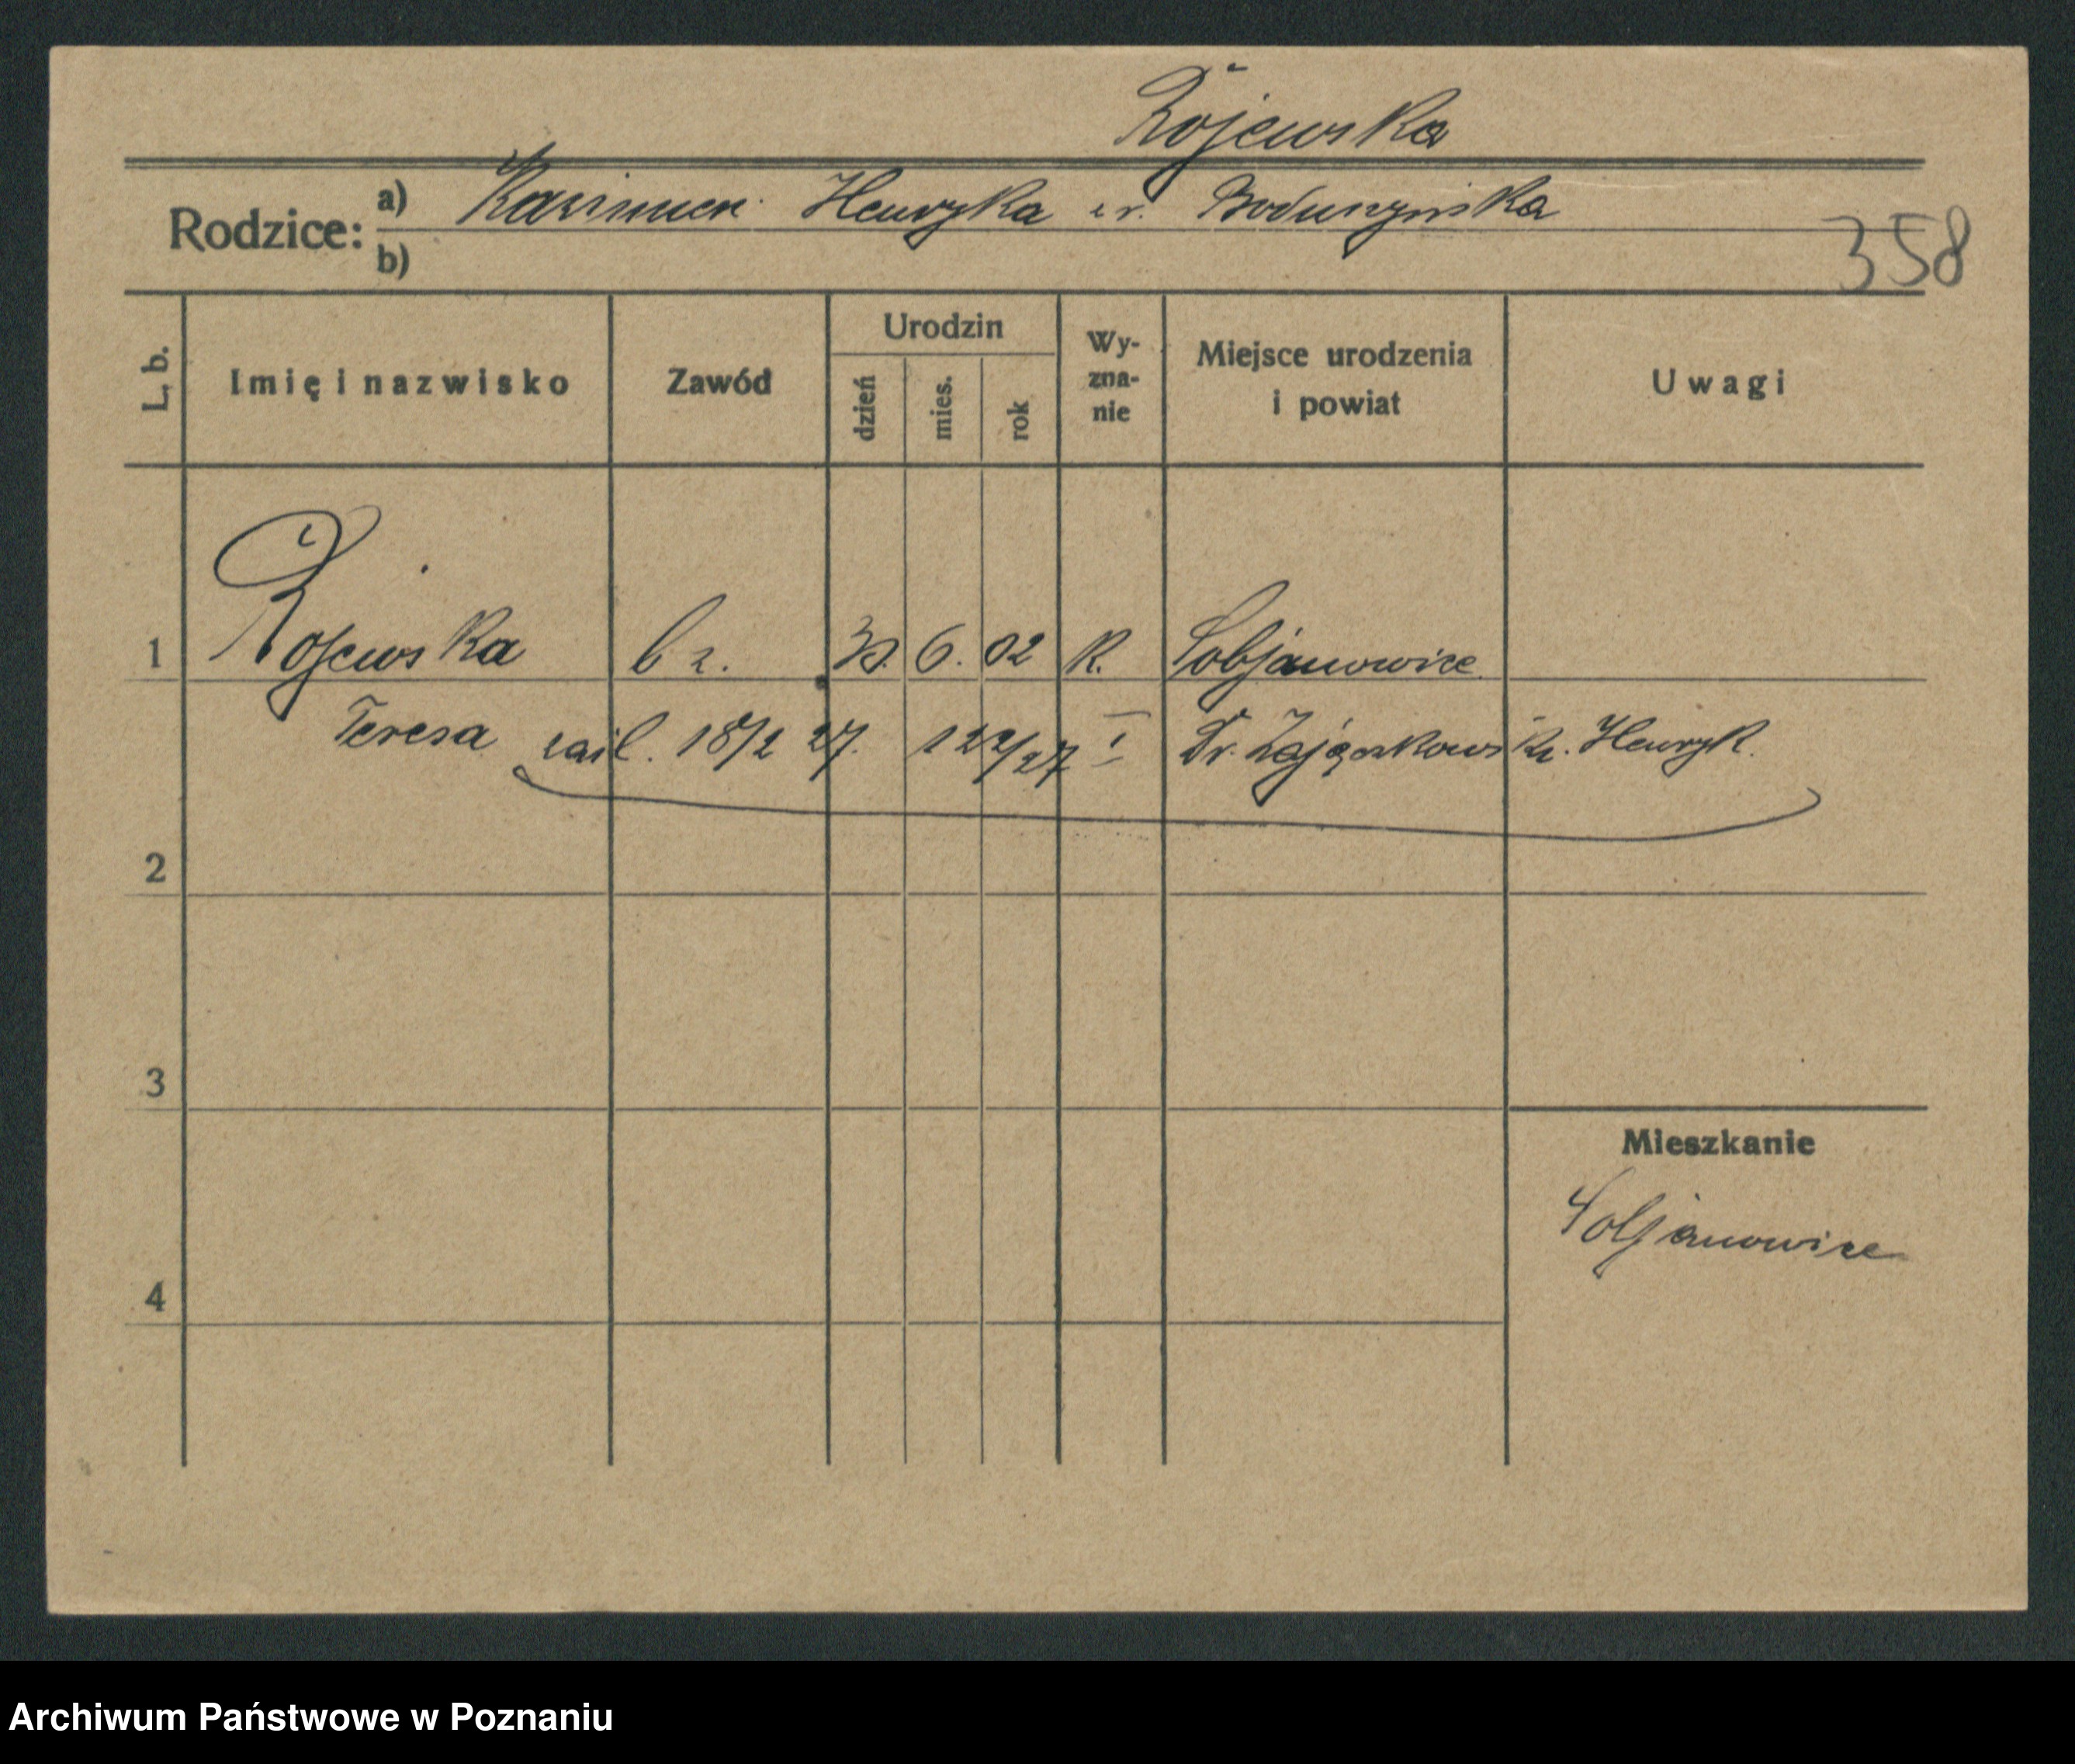 Rojewska
Rodzice: a) Kazimierz Henryka zr. Boduszyńska
b)
358
L. b. Imię i nazwisko Zawód Urodzin dzień mies. rok Wy-zna-nie Miejsce urodzenia i powiat Uwagi
1 Rojewska bz. 30. 6. 02 K. Sobjanowice
Teresa zaśl. 18/2 27. Dr. Zajączkowski. Henryk.
2
3
Mieszkanie
Sobjanowice
4
Archiwum Państwowe w Poznaniu